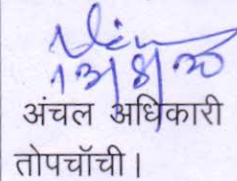 13/8/20
अंचल अधिकारी
तोपचॉची।